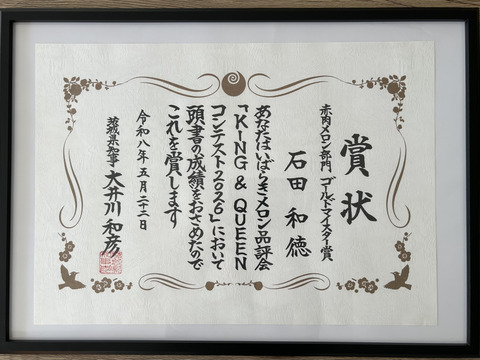 賞状
赤肉メロン部門 ゴールドマイスター賞
石田 和徳
あなたはいばらきメロン品評会
「KING & QUEEN
コンテスト2026」において
頭書の成績をおさめたので
これを賞します
令和八年 五月二十二日
茨城県知事 大井川 和彦